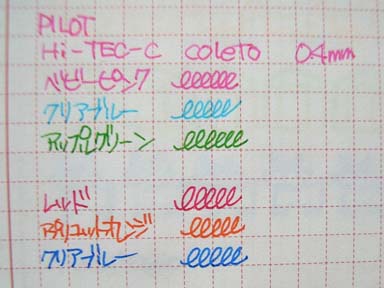 PILOT
Hi-TEC-C coleto 0.4mm
ベビーピンク
クリアブルー
アップルグリーン
レッド
アプリコットオレンジ
クリアブルー